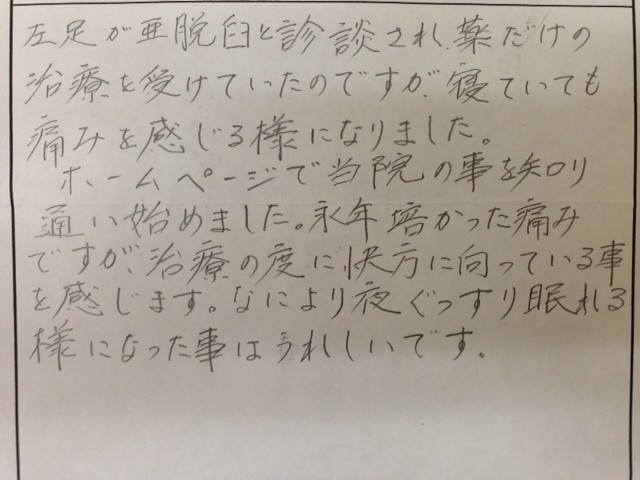 左足が亜脱臼と診談され、薬だけの
治療を受けていたのですが、寝ていても
痛みを感じる様になりました。
ホームページで当院の事を知り
通い始めました。永年培かった痛み
ですが、治療の度に快方に向っている事
を感じます。なにより夜ぐっすり眠れる
様になった事はうれしいです。